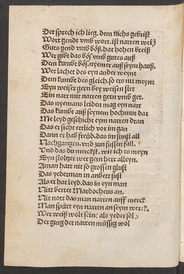 Der sprech ich lieg, dem nichts gebrist
Wort gendt vmb wort, ist narren weiß
Guts gend vmb böß, hat hohen breiß
Wer gibt das böß vmb guts auß
Dem kumbt böß nymer auß seym hauß
Wer lachet des eyn ander weynt
Dem kumbt das gleich, so ers nit meynt
Eyn weiser gern bey weisen stet
Eyn narr mit narren gern vmb get
Das nyemans leiden mag eyn narr
Das kumbt auß seynem hochmut dar
Me leyd geschicht eyn narren dran
Das er sicht erlich vor im gan
Dann er hab freüd, das im sunst all
Nachgangen, vnd zun füssen fall
Vnd das du merckst, wie ich es meyn
Eyn stoltzer wer gern herr alleyn
Aman hatt nit so grossen glust
Das yederman in anbett sust
Als er hat leyd, das in eyn man
Nitt bettet Mardocheus an
Nit nott das man narren auff merck
Man spürt eyn narren an seym werck
Wer weiß wolt sein, als yeder soll
Der gieng der narren müssig wol